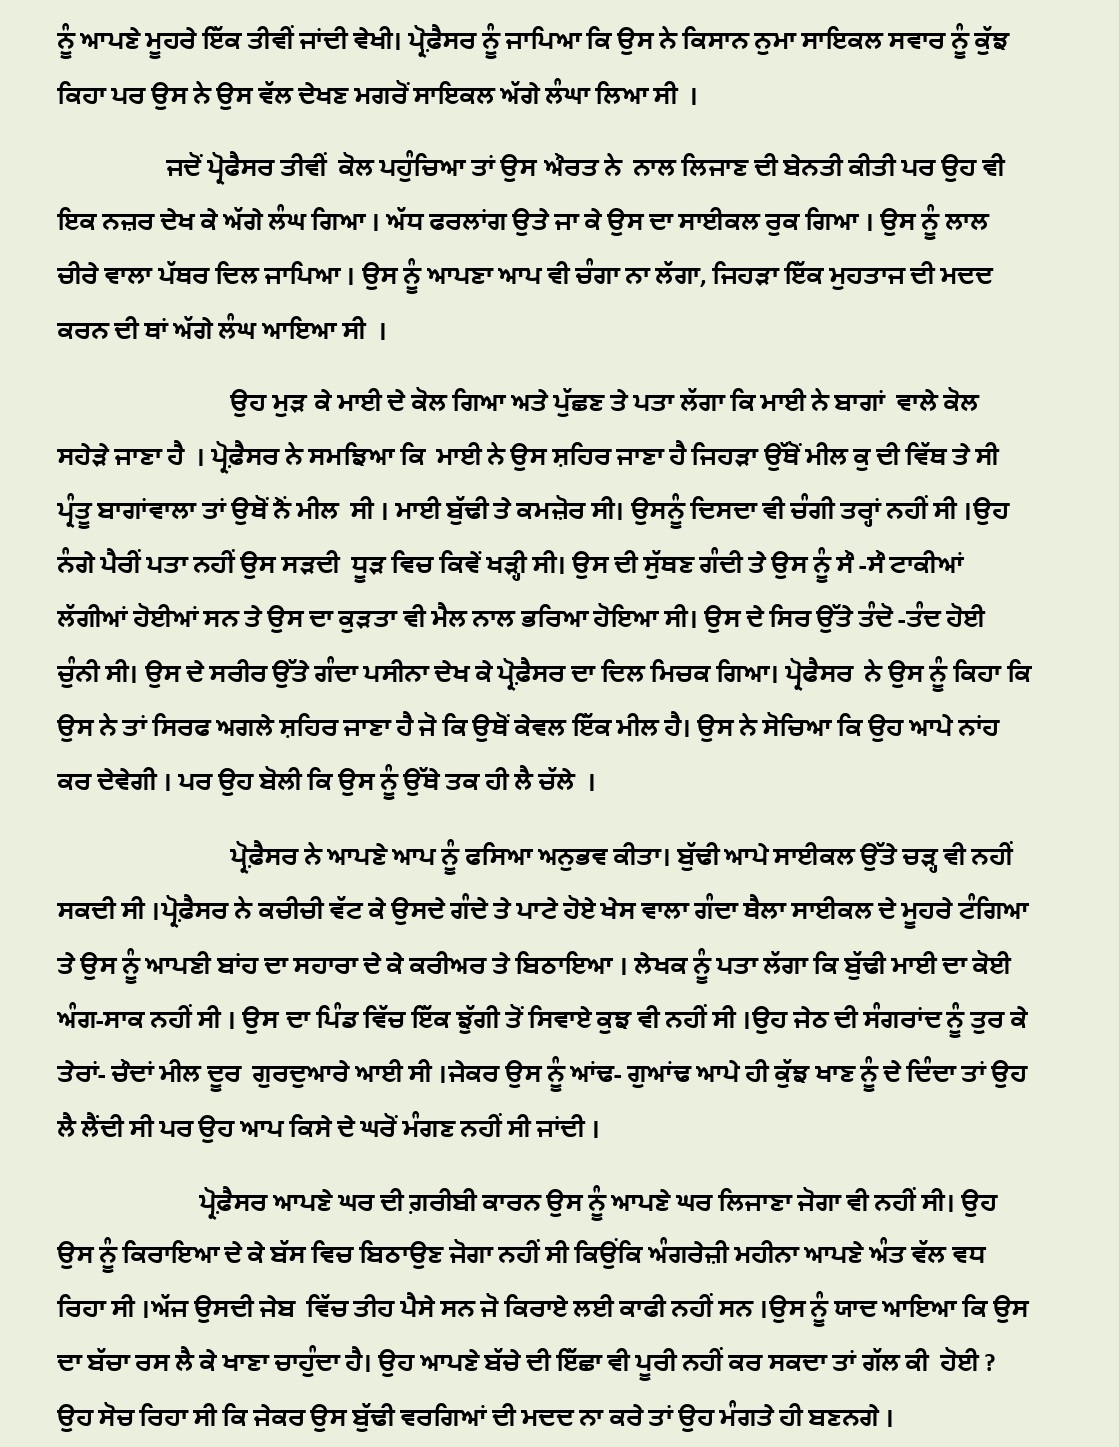 ਨੂੰ ਆਪਣੇ ਮੂਹਰੇ ਇੱਕ ਤੀਵੀਂ ਜਾਂਦੀ ਵੇਖੀ। ਪ੍ਰੋਫ਼ੈਸਰ ਨੂੰ ਜਾਪਿਆ ਕਿ ਉਸ ਨੇ ਕਿਸਾਨ ਨੁਮਾ ਸਾਇਕਲ ਸਵਾਰ ਨੂੰ ਕੁੱਝ
ਕਿਹਾ ਪਰ ਉਸ ਨੇ ਉਸ ਵੱਲ ਦੇਖਣ ਮਗਰੋਂ ਸਾਇਕਲ ਅੱਗੇ ਲੰਘਾ ਲਿਆ ਸੀ ।
ਜਦੋਂ ਪ੍ਰੋਫੈਸਰ ਤੀਵੀਂ ਕੋਲ ਪਹੁੰਚਿਆ ਤਾਂ ਉਸ ਔਰਤ ਨੇ ਨਾਲ ਲਿਜਾਣ ਦੀ ਬੇਨਤੀ ਕੀਤੀ ਪਰ ਉਹ ਵੀ
ਇਕ ਨਜ਼ਰ ਦੇਖ ਕੇ ਅੱਗੇ ਲੰਘ ਗਿਆ । ਅੱਧ ਫਰਲਾਂਗ ਉਤੇ ਜਾ ਕੇ ਉਸ ਦਾ ਸਾਈਕਲ ਰੁਕ ਗਿਆ । ਉਸ ਨੂੰ ਲਾਲ
ਚੀਰੇ ਵਾਲਾ ਪੱਥਰ ਦਿਲ ਜਾਪਿਆ । ਉਸ ਨੂੰ ਆਪਣਾ ਆਪ ਵੀ ਚੰਗਾ ਨਾ ਲੱਗਾ, ਜਿਹੜਾ ਇੱਕ ਮੁਹਤਾਜ ਦੀ ਮਦਦ
ਕਰਨ ਦੀ ਥਾਂ ਅੱਗੇ ਲੰਘ ਆਇਆ ਸੀ ।
ਉਹ ਮੁੜ ਕੇ ਮਾਈ ਦੇ ਕੋਲ ਗਿਆ ਅਤੇ ਪੁੱਛਣ ਤੇ ਪਤਾ ਲੱਗਾ ਕਿ ਮਾਈ ਨੇ ਬਾਗਾਂ ਵਾਲੇ ਕੋਲ
ਸਹੇੜੇ ਜਾਣਾ ਹੈ । ਪ੍ਰੋਫ਼ੈਸਰ ਨੇ ਸਮਝਿਆ ਕਿ ਮਾਈ ਨੇ ਉਸ ਸ਼ਹਿਰ ਜਾਣਾ ਹੈ ਜਿਹੜਾ ਉੱਥੋਂ ਮੀਲ ਕੁ ਦੀ ਵਿੱਥ ਤੇ ਸੀ
ਪ੍ਰੰਤੂ ਬਾਗਾਂਵਾਲਾ ਤਾਂ ਉਥੋਂ ਨੌਂ ਮੀਲ ਸੀ । ਮਾਈ ਬੁੱਢੀ ਤੇ ਕਮਜ਼ੋਰ ਸੀ। ਉਸਨੂੰ ਦਿਸਦਾ ਵੀ ਚੰਗੀ ਤਰ੍ਹਾਂ ਨਹੀਂ ਸੀ ।ਉਹ
ਨੰਗੇ ਪੈਰੀਂ ਪਤਾ ਨਹੀਂ ਉਸ ਸੜਦੀ ਧੂੜ ਵਿਚ ਕਿਵੇਂ ਖੜ੍ਹੀ ਸੀ। ਉਸ ਦੀ ਸੁੱਥਣ ਗੰਦੀ ਤੇ ਉਸ ਨੂੰ ਸੌ -ਸੌ ਟਾਕੀਆਂ
ਲੱਗੀਆਂ ਹੋਈਆਂ ਸਨ ਤੇ ਉਸ ਦਾ ਕੁੜਤਾ ਵੀ ਮੈਲ ਨਾਲ ਭਰਿਆ ਹੋਇਆ ਸੀ। ਉਸ ਦੇ ਸਿਰ ਉੱਤੇ ਤੰਦੋ -ਤੰਦ ਹੋਈ
ਚੁੰਨੀ ਸੀ। ਉਸ ਦੇ ਸਰੀਰ ਉੱਤੇ ਗੰਦਾ ਪਸੀਨਾ ਦੇਖ ਕੇ ਪ੍ਰੋਫ਼ੈਸਰ ਦਾ ਦਿਲ ਮਿਚਕ ਗਿਆ। ਪ੍ਰੋਫੈਸਰ ਨੇ ਉਸ ਨੂੰ ਕਿਹਾ ਕਿ
ਉਸ ਨੇ ਤਾਂ ਸਿਰਫ ਅਗਲੇ ਸ਼ਹਿਰ ਜਾਣਾ ਹੈ ਜੋ ਕਿ ਉਥੋਂ ਕੇਵਲ ਇੱਕ ਮੀਲ ਹੈ। ਉਸ ਨੇ ਸੋਚਿਆ ਕਿ ਉਹ ਆਪੇ ਨਾਂਹ
ਕਰ ਦੇਵੇਗੀ । ਪਰ ਉਹ ਬੋਲੀ ਕਿ ਉਸ ਨੂੰ ਉੱਥੇ ਤਕ ਹੀ ਲੈ ਚੱਲੇ ।
ਪ੍ਰੋਫ਼ੈਸਰ ਨੇ ਆਪਣੇ ਆਪ ਨੂੰ ਫਸਿਆ ਅਨੁਭਵ ਕੀਤਾ। ਬੁੱਢੀ ਆਪੇ ਸਾਈਕਲ ਉੱਤੇ ਚੜ੍ਹ ਵੀ ਨਹੀਂ
ਸਕਦੀ ਸੀ ।ਪ੍ਰੋਫ਼ੈਸਰ ਨੇ ਕਚੀਚੀ ਵੱਟ ਕੇ ਉਸਦੇ ਗੰਦੇ ਤੇ ਪਾਟੇ ਹੋਏ ਖੇਸ ਵਾਲਾ ਗੰਦਾ ਥੈਲਾ ਸਾਈਕਲ ਦੇ ਮੂਹਰੇ ਟੰਗਿਆ
ਤੇ ਉਸ ਨੂੰ ਆਪਣੀ ਬਾਂਹ ਦਾ ਸਹਾਰਾ ਦੇ ਕੇ ਕਰੀਅਰ ਤੇ ਬਿਠਾਇਆ । ਲੇਖਕ ਨੂੰ ਪਤਾ ਲੱਗਾ ਕਿ ਬੁੱਢੀ ਮਾਈ ਦਾ ਕੋਈ
ਅੰਗ-ਸਾਕ ਨਹੀਂ ਸੀ । ਉਸ ਦਾ ਪਿੰਡ ਵਿੱਚ ਇੱਕ ਝੁੱਗੀ ਤੋਂ ਸਿਵਾਏ ਕੁਝ ਵੀ ਨਹੀਂ ਸੀ ।ਉਹ ਜੇਠ ਦੀ ਸੰਗਰਾਂਦ ਨੂੰ ਤੁਰ ਕੇ
ਤੇਰਾਂ- ਚੌਦਾਂ ਮੀਲ ਦੂਰ ਗੁਰਦੁਆਰੇ ਆਈ ਸੀ ।ਜੇਕਰ ਉਸ ਨੂੰ ਆਂਢ- ਗੁਆਂਢ ਆਪੇ ਹੀ ਕੁੱਝ ਖਾਣ ਨੂੰ ਦੇ ਦਿੰਦਾ ਤਾਂ ਉਹ
ਲੈ ਲੈਂਦੀ ਸੀ ਪਰ ਉਹ ਆਪ ਕਿਸੇ ਦੇ ਘਰੋਂ ਮੰਗਣ ਨਹੀਂ ਸੀ ਜਾਂਦੀ ।
ਪ੍ਰੋਫ਼ੈਸਰ ਆਪਣੇ ਘਰ ਦੀ ਗ਼ਰੀਬੀ ਕਾਰਨ ਉਸ ਨੂੰ ਆਪਣੇ ਘਰ ਲਿਜਾਣਾ ਜੋਗਾ ਵੀ ਨਹੀਂ ਸੀ। ਉਹ
ਉਸ ਨੂੰ ਕਿਰਾਇਆ ਦੇ ਕੇ ਬੱਸ ਵਿਚ ਬਿਠਾਉਣ ਜੋਗਾ ਨਹੀਂ ਸੀ ਕਿਉਂਕਿ ਅੰਗਰੇਜ਼ੀ ਮਹੀਨਾ ਆਪਣੇ ਅੰਤ ਵੱਲ ਵਧ
ਰਿਹਾ ਸੀ ।ਅੱਜ ਉਸਦੀ ਜੇਬ ਵਿੱਚ ਤੀਹ ਪੈਸੇ ਸਨ ਜੋ ਕਿਰਾਏ ਲਈ ਕਾਫੀ ਨਹੀਂ ਸਨ ।ਉਸ ਨੂੰ ਯਾਦ ਆਇਆ ਕਿ ਉਸ
ਦਾ ਬੱਚਾ ਰਸ ਲੈ ਕੇ ਖਾਣਾ ਚਾਹੁੰਦਾ ਹੈ। ਉਹ ਆਪਣੇ ਬੱਚੇ ਦੀ ਇੱਛਾ ਵੀ ਪੂਰੀ ਨਹੀਂ ਕਰ ਸਕਦਾ ਤਾਂ ਗੱਲ ਕੀ ਹੋਈ ?
ਉਹ ਸੋਚ ਰਿਹਾ ਸੀ ਕਿ ਜੇਕਰ ਉਸ ਬੁੱਢੀ ਵਰਗਿਆਂ ਦੀ ਮਦਦ ਨਾ ਕਰੇ ਤਾਂ ਉਹ ਮੰਗਤੇ ਹੀ ਬਣਨਗੇ ।